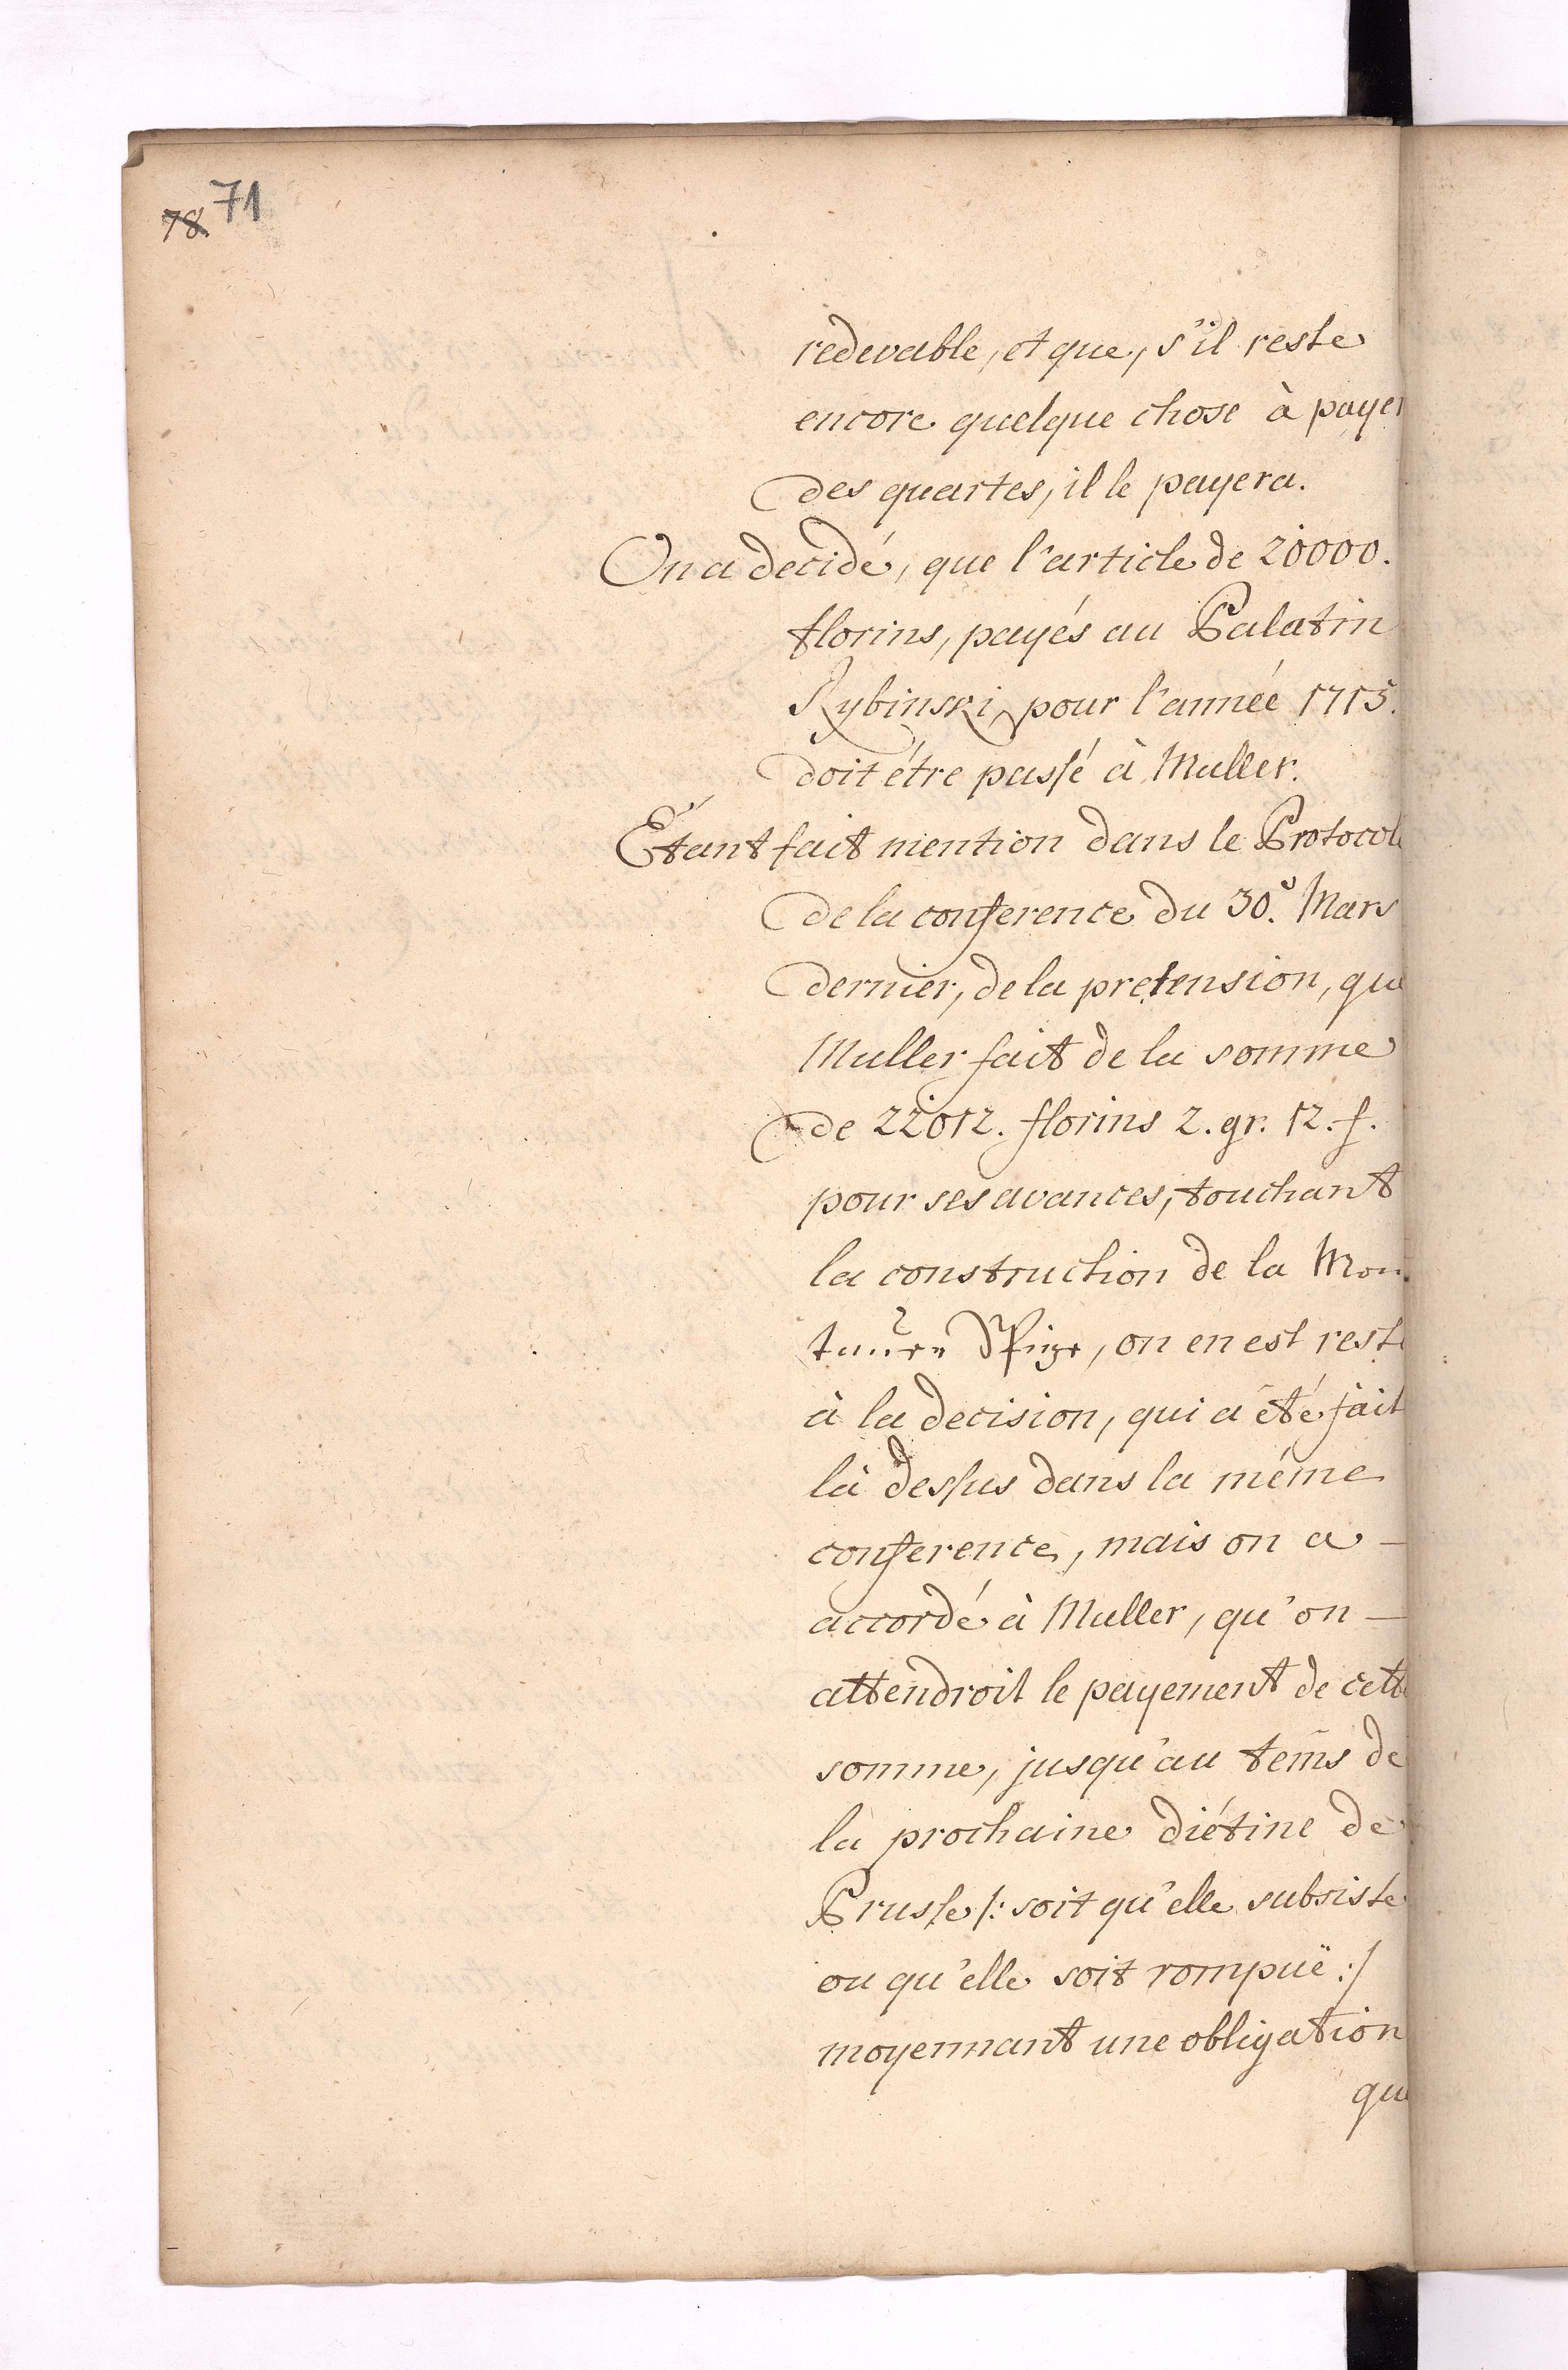 71
78.
redevable, et que, s'il reste
encore quelque chose à payer
des quartes, il le payera.
On a decidé, que l'article de 20000.
florins, payés au Palatin
Rybinski, pour l'année 1715.
doit étre passé à Muller.
Étant fait mention dans le Protocole
de la conference du 30.e Mars
dernier, de la pretension, que
Muller fait de la somme
de 22012. florins 2. gr. 12. f.
pour ses avances, touchant
la construction de la Mon-
tauer Spize, on en est resté
à la decision, qui a été fait
là dessus dans la méme
conference, mais on a –
accordé à Muller, qu'on –
attendroit le payement de cette
somme, jusqu'au tems de
la prochaine diétine de
Prusse /: soit qu'elle subsiste
ou qu'elle soit rompuë :/
moyennant une obligation
que